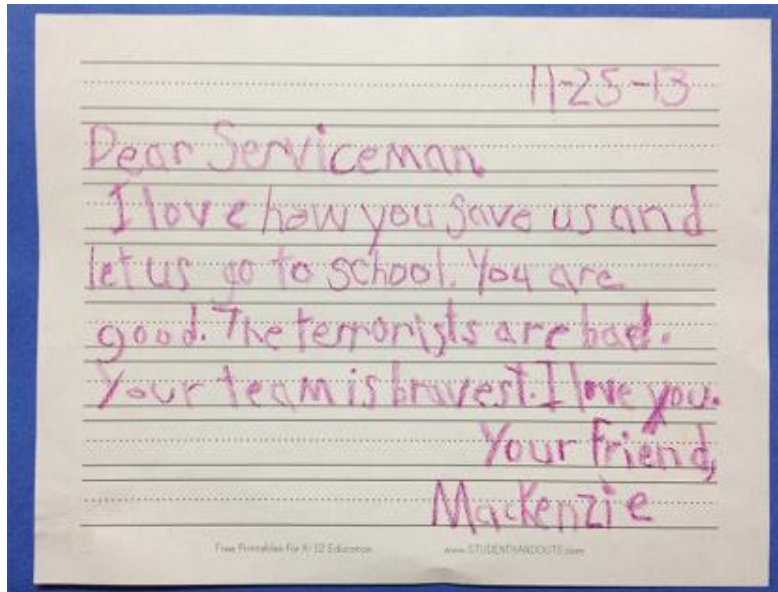 11-25-13
Dear Serviceman
I love how you save us and
let us go to school. You are
good. The terrorists are bad.
Your team is bravest. I love you.
Your friend,
Mackenzie
Free Printables For K-12 Education www.STUDENTHANDOUTS.com